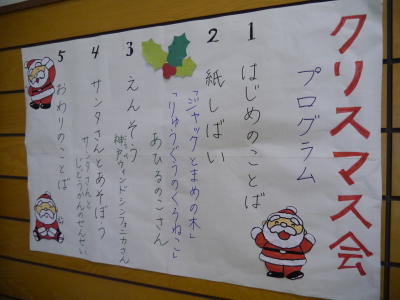 クリスマス会
プログラム
1 はじめのことば
2 紙しばい
「ジャックとまめの木」
「りゅうぐうのくろねこ」
あひるのこさん
3 えんそう
神戸ウィンドシンフォニカさん
4 サンタさんとあそぼう
サンタさんと
じどうかんのせんせい
5 おわりのことば